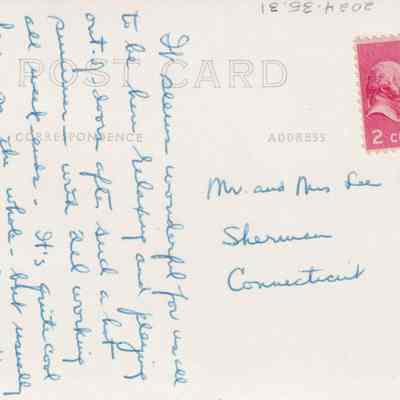 2024.35.31
POST CARD
CORRESPONDENCE
ADDRESS
2 C
It seems wonderful for us all
to be here relaxing and playing
out-of-doors after such a hot
summer - with Zed working
all week ends - It's quite cool
on the whole - but usually
Mr. and Mrs Lee
Sherman
Connecticut